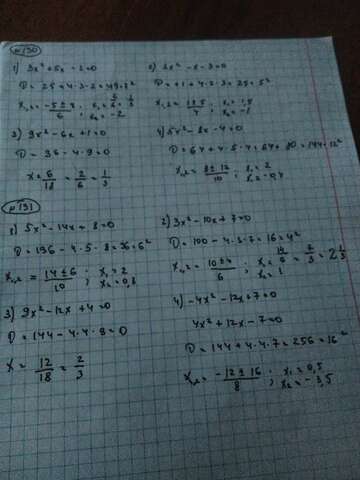 №130
1) 3x² + 5x - 2 = 0
D = 25 + 4·3·2 = 49 = 7²
x₁,₂ = (-5 ± 7)/6 ; x₁ = 2/6 = 1/3
x₂ = -2
2) 2x² - x - 3 = 0
D = +1 + 4·2·3 = 25 = 5²
x₁,₂ = (1 ± 5)/4 ; x₁ = 1,5
x₂ = -1
3) 9x² - 6x + 1 = 0
D = 36 - 4·9 = 0
x = 6/18 = 2/6 = 1/3
4) 5x² - 8x - 4 = 0
D = 64 + 4·5·4 = 64 + 80 = 144 = 12²
x₁,₂ = (8 ± 12)/10 ; x₁ = 2
x₂ = -0,4
№131
1) 5x² - 14x + 8 = 0
D = 196 - 4·5·8 = 36 = 6²
x₁,₂ = (14 ± 6)/10 ; x₁ = 2
x₂ = 0,8
2) 3x² - 10x + 7 = 0
D = 100 - 4·3·7 = 16 = 4²
x₁,₂ = (10 ± 4)/6 ; x₁ = 14/6 = 7/3 = 2 1/3
x₂ = 1
3) 9x² - 12x + 4 = 0
D = 144 - 4·4·9 = 0
x = 12/18 = 2/3
4) -4x² - 12x + 7 = 0
4x² + 12x - 7 = 0
D = 144 + 4·4·7 = 256 = 16²
x₁,₂ = (-12 ± 16)/8 ; x₁ = 0,5
x₂ = -3,5